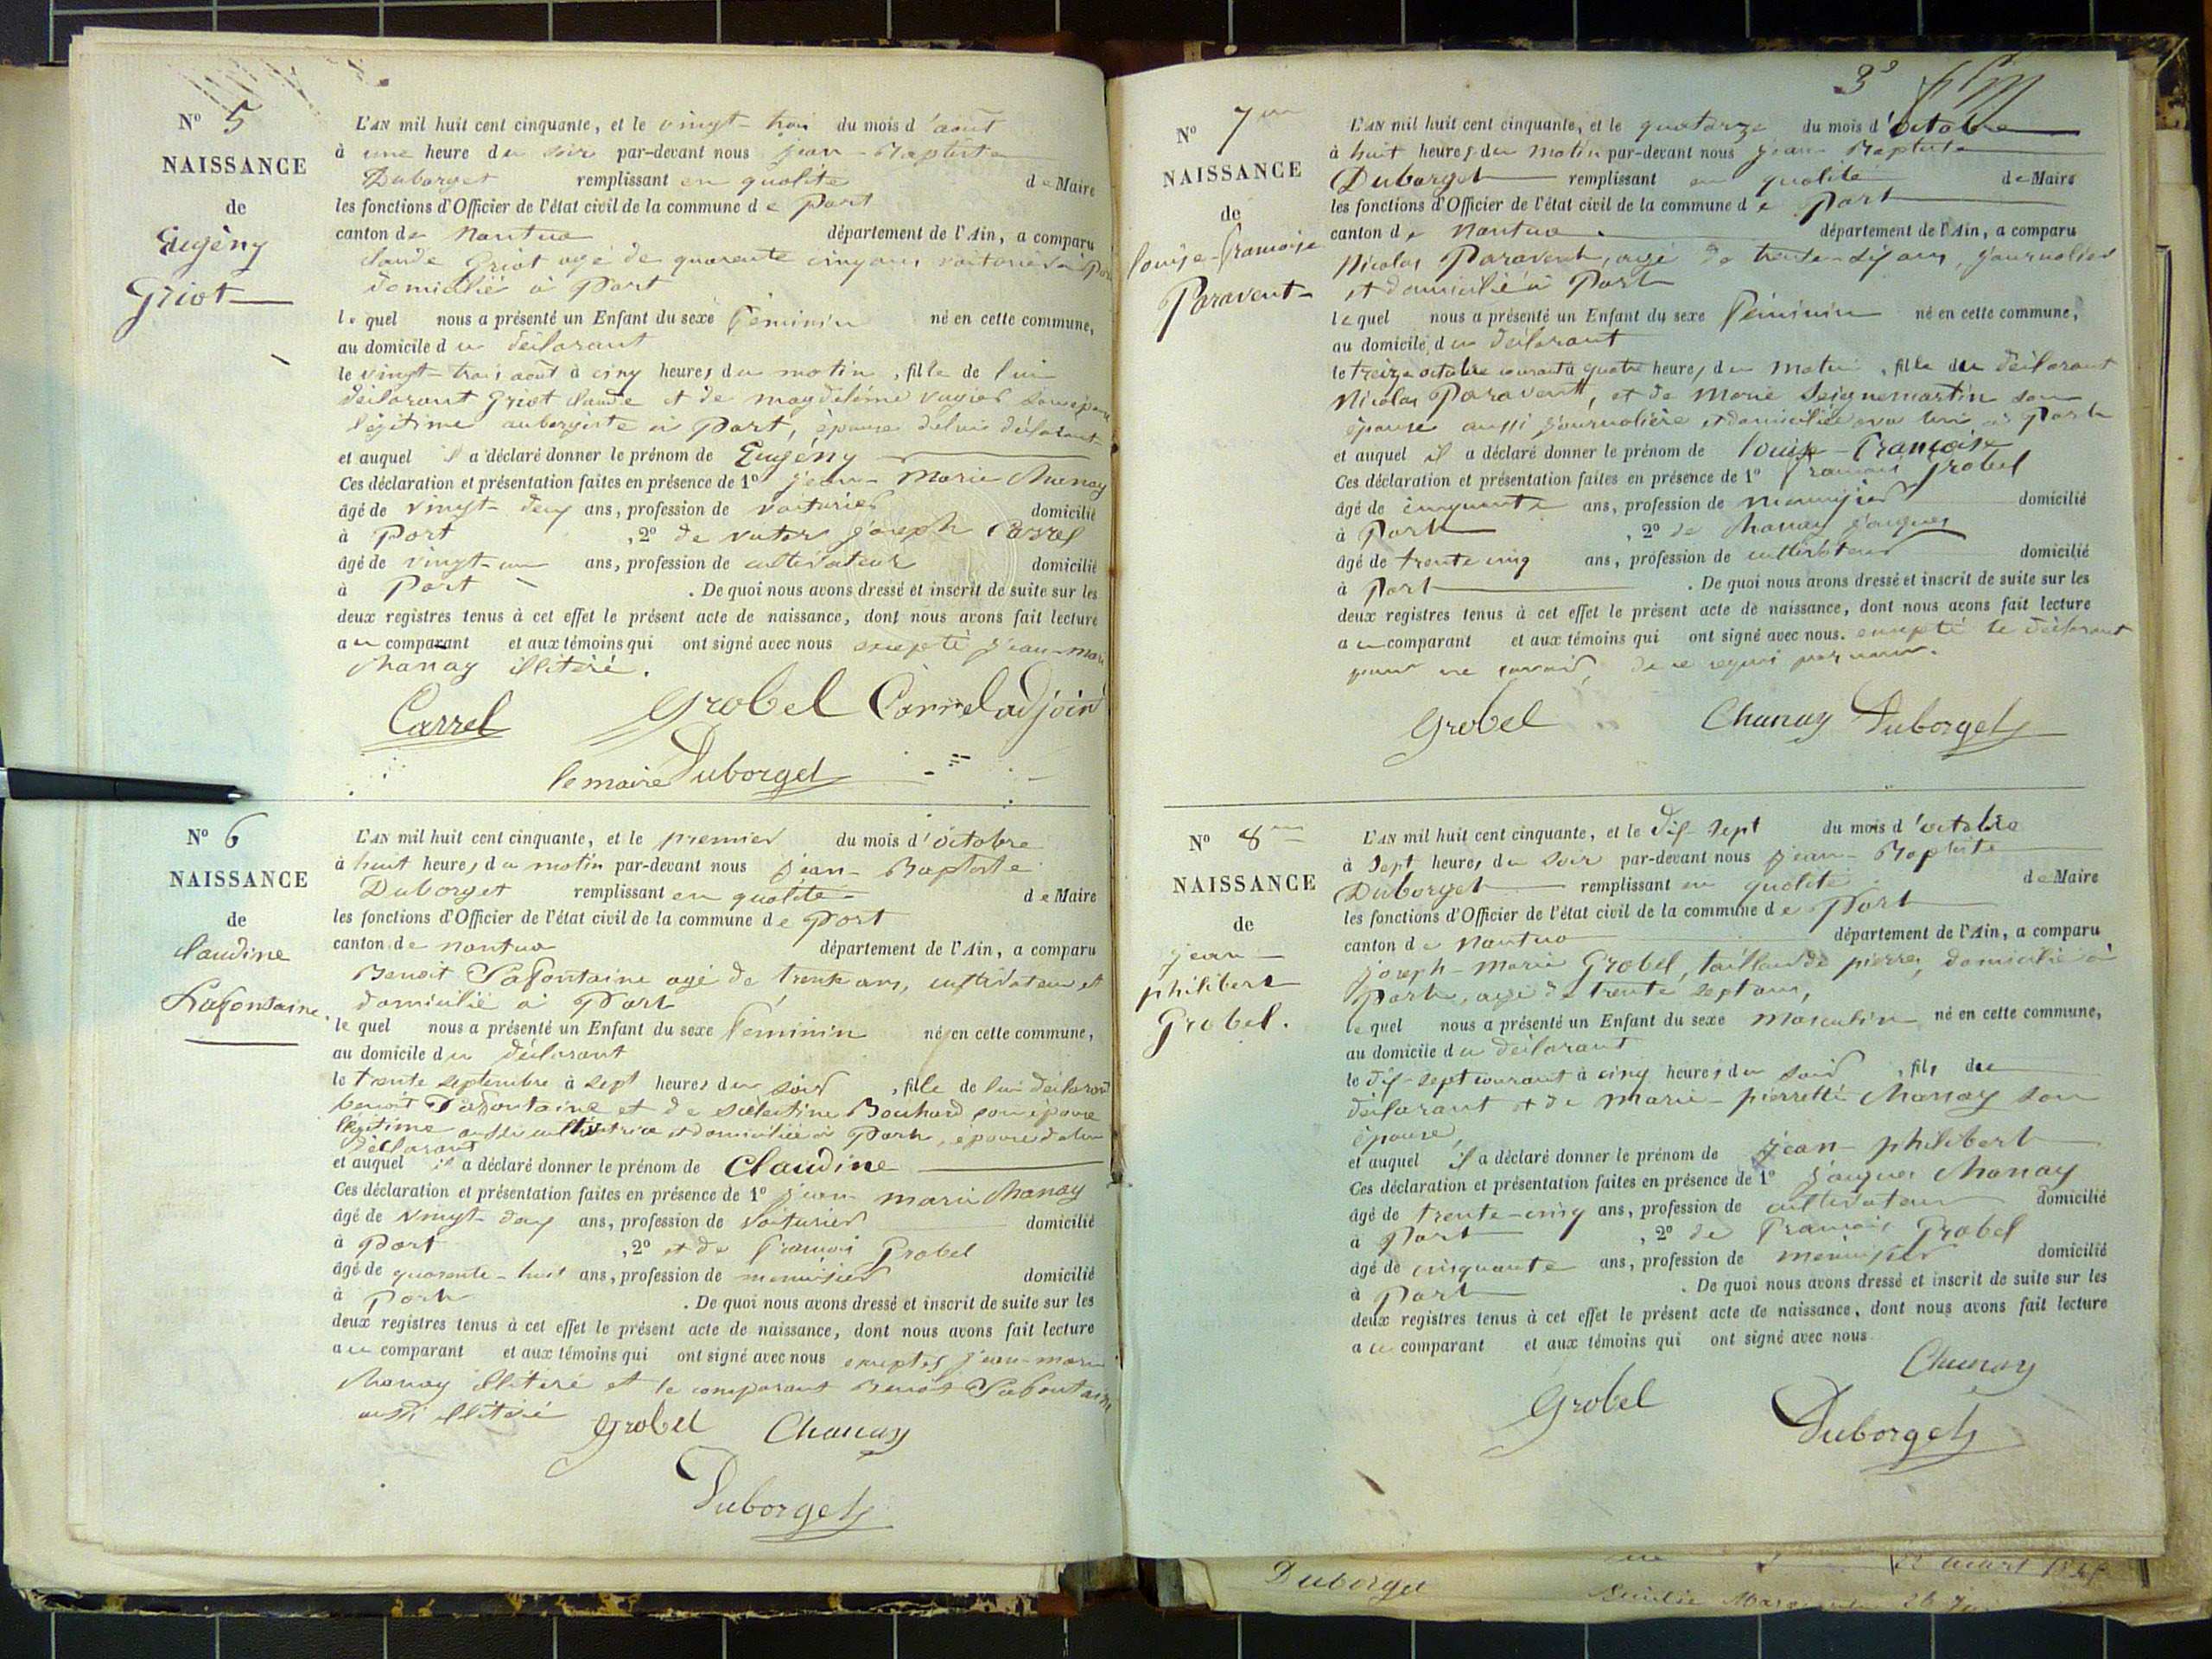 N° 5
NAISSANCE
de
Eugèny
Griot
L'AN mil huit cent cinquante, et le vingt-trois du mois d'août
à une heure du soir par-devant nous jean-Baptiste
Duborget remplissant en qualité de Maire
les fonctions d'Officier de l'état civil de la commune de Port
canton de Nantua département de l'Ain, a comparu
Claude Griot agé de quarante cinq ans voiturier à Port
domicilié à Port
lequel nous a présenté un Enfant du sexe féminin né en cette commune,
au domicile du déclarant
le vingt-trois août à cinq heures du matin, fille de lui
déclarant Griot Claude et de magdeleine son épouse
légitime aubergiste à Port, épouse de lui déclarant
et auquel il a déclaré donner le prénom de Eugény
Ces déclaration et présentation faites en présence de 1° jean-Marie Chanay
âgé de vingt-deux ans, profession de voiturier domicilié
à Port, 2° de joseph Carrel
âgé de vingt-un ans, profession de cultivateur domicilié
à Port. De quoi nous avons dressé et inscrit de suite sur les
deux registres tenus à cet effet le présent acte de naissance, dont nous avons fait lecture
au comparant et aux témoins qui ont signé avec nous excepté jean-Marie
Chanay illitéré.
Carrel Grobel Carrel adjoint
le maire Duborget
N° 6
NAISSANCE
de
Claudine
Lafontaine.
L'AN mil huit cent cinquante, et le premier du mois d'octobre
à huit heures du matin par-devant nous jean-Baptiste
Duborget remplissant en qualité de Maire
les fonctions d'Officier de l'état civil de la commune de Port
canton de nantua département de l'Ain, a comparu
Benoit Lafontaine agé de trente ans, cultivateur et
domicilié à Port
lequel nous a présenté un Enfant du sexe féminin né en cette commune,
au domicile du déclarant
le trente septembre à sept heures du soir, fille de lui déclarant
benoit Lafontaine et de Bouhard son épouse
légitime aussi cultivatrice et domiciliée à Port, épouse de lui
déclarant
et auquel il a déclaré donner le prénom de Claudine
Ces déclaration et présentation faites en présence de 1° jean marie Chanay
âgé de vingt-deux ans, profession de voiturier domicilié
à Port, 2° et de françois Grobel
âgé de quarante-huit ans, profession de menuisier domicilié
à Port. De quoi nous avons dressé et inscrit de suite sur les
deux registres tenus à cet effet le présent acte de naissance, dont nous avons fait lecture
au comparant et aux témoins qui ont signé avec nous exceptés jean-marie
Chanay illitéré et le comparant Benoit Lafontaine
aussi illitéré
Grobel Chanay
Duborget
3e
N° 7me
NAISSANCE
de
louise-françoise
Paravent
L'AN mil huit cent cinquante, et le quatorze du mois d'octobre
à huit heures du matin par-devant nous jean Baptiste
Duborget remplissant en qualité de Maire
les fonctions d'Officier de l'état civil de la commune de Port
canton de Nantua. département de l'Ain, a comparu
Nicolas Paravent, agé de trente-six ans, journalier
et domicilié à Port
lequel nous a présenté un Enfant du sexe féminin né en cette commune,
au domicile du déclarant
le treize octobre courant à quatre heures du matin, fille du déclarant
Nicolas Paravent, et de Marie Seignemartin son
épouse aussi journalière et domiciliée avec lui à Port
et auquel il a déclaré donner le prénom de louise-françoise
Ces déclaration et présentation faites en présence de 1° françois Grobel
âgé de cinquante ans, profession de menuisier domicilié
à Port, 2° de Chanay jacques
âgé de trente cinq ans, profession de cultivateur domicilié
à Port. De quoi nous avons dressé et inscrit de suite sur les
deux registres tenus à cet effet le présent acte de naissance, dont nous avons fait lecture
au comparant et aux témoins qui ont signé avec nous. excepté le déclarant
pour ne savoir, de ce requis par nous.
Grobel Chanay Duborget
N° 8me
NAISSANCE
de
jean-
philibert
Grobel.
L'AN mil huit cent cinquante, et le dix-sept du mois d'octobre
à sept heures du soir par-devant nous jean-Baptiste
Duborget remplissant en qualité de Maire
les fonctions d'Officier de l'état civil de la commune de Port
canton de Nantua département de l'Ain, a comparu
joseph-marie Grobel, tailleur de pierres, domicilié à
Port, agé de trente sept ans,
lequel nous a présenté un Enfant du sexe masculin né en cette commune,
au domicile du déclarant
le dix-sept courant à cinq heures du soir, fils du
déclarant et de marie-pierrette Chanay son
épouse,
et auquel il a déclaré donner le prénom de jean-philibert
Ces déclaration et présentation faites en présence de 1° jacques Chanay
âgé de trente-cinq ans, profession de cultivateur domicilié
à Port, 2° de françois Grobel
âgé de cinquante ans, profession de menuisier domicilié
à Port. De quoi nous avons dressé et inscrit de suite sur les
deux registres tenus à cet effet le présent acte de naissance, dont nous avons fait lecture
au comparant et aux témoins qui ont signé avec nous
Chanay
Grobel
Duborget
Duborget